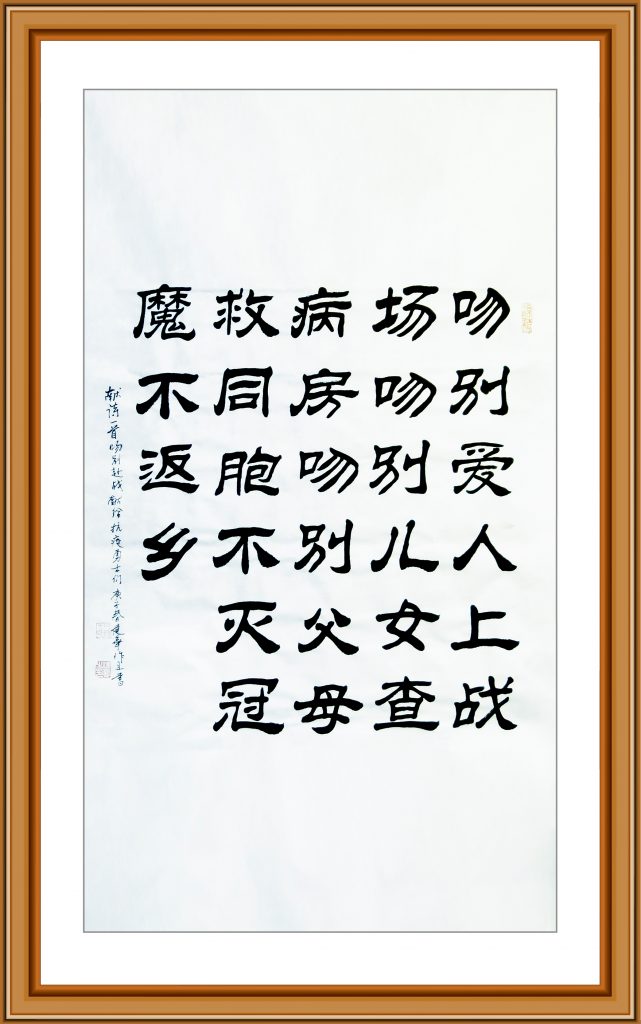 吻别爱人上战
场吻别儿女查
病房吻别父母
救同胞不灭冠
魔不返乡
献诗一首吻别赴战献给抗疫勇士们庚子春建章作并书